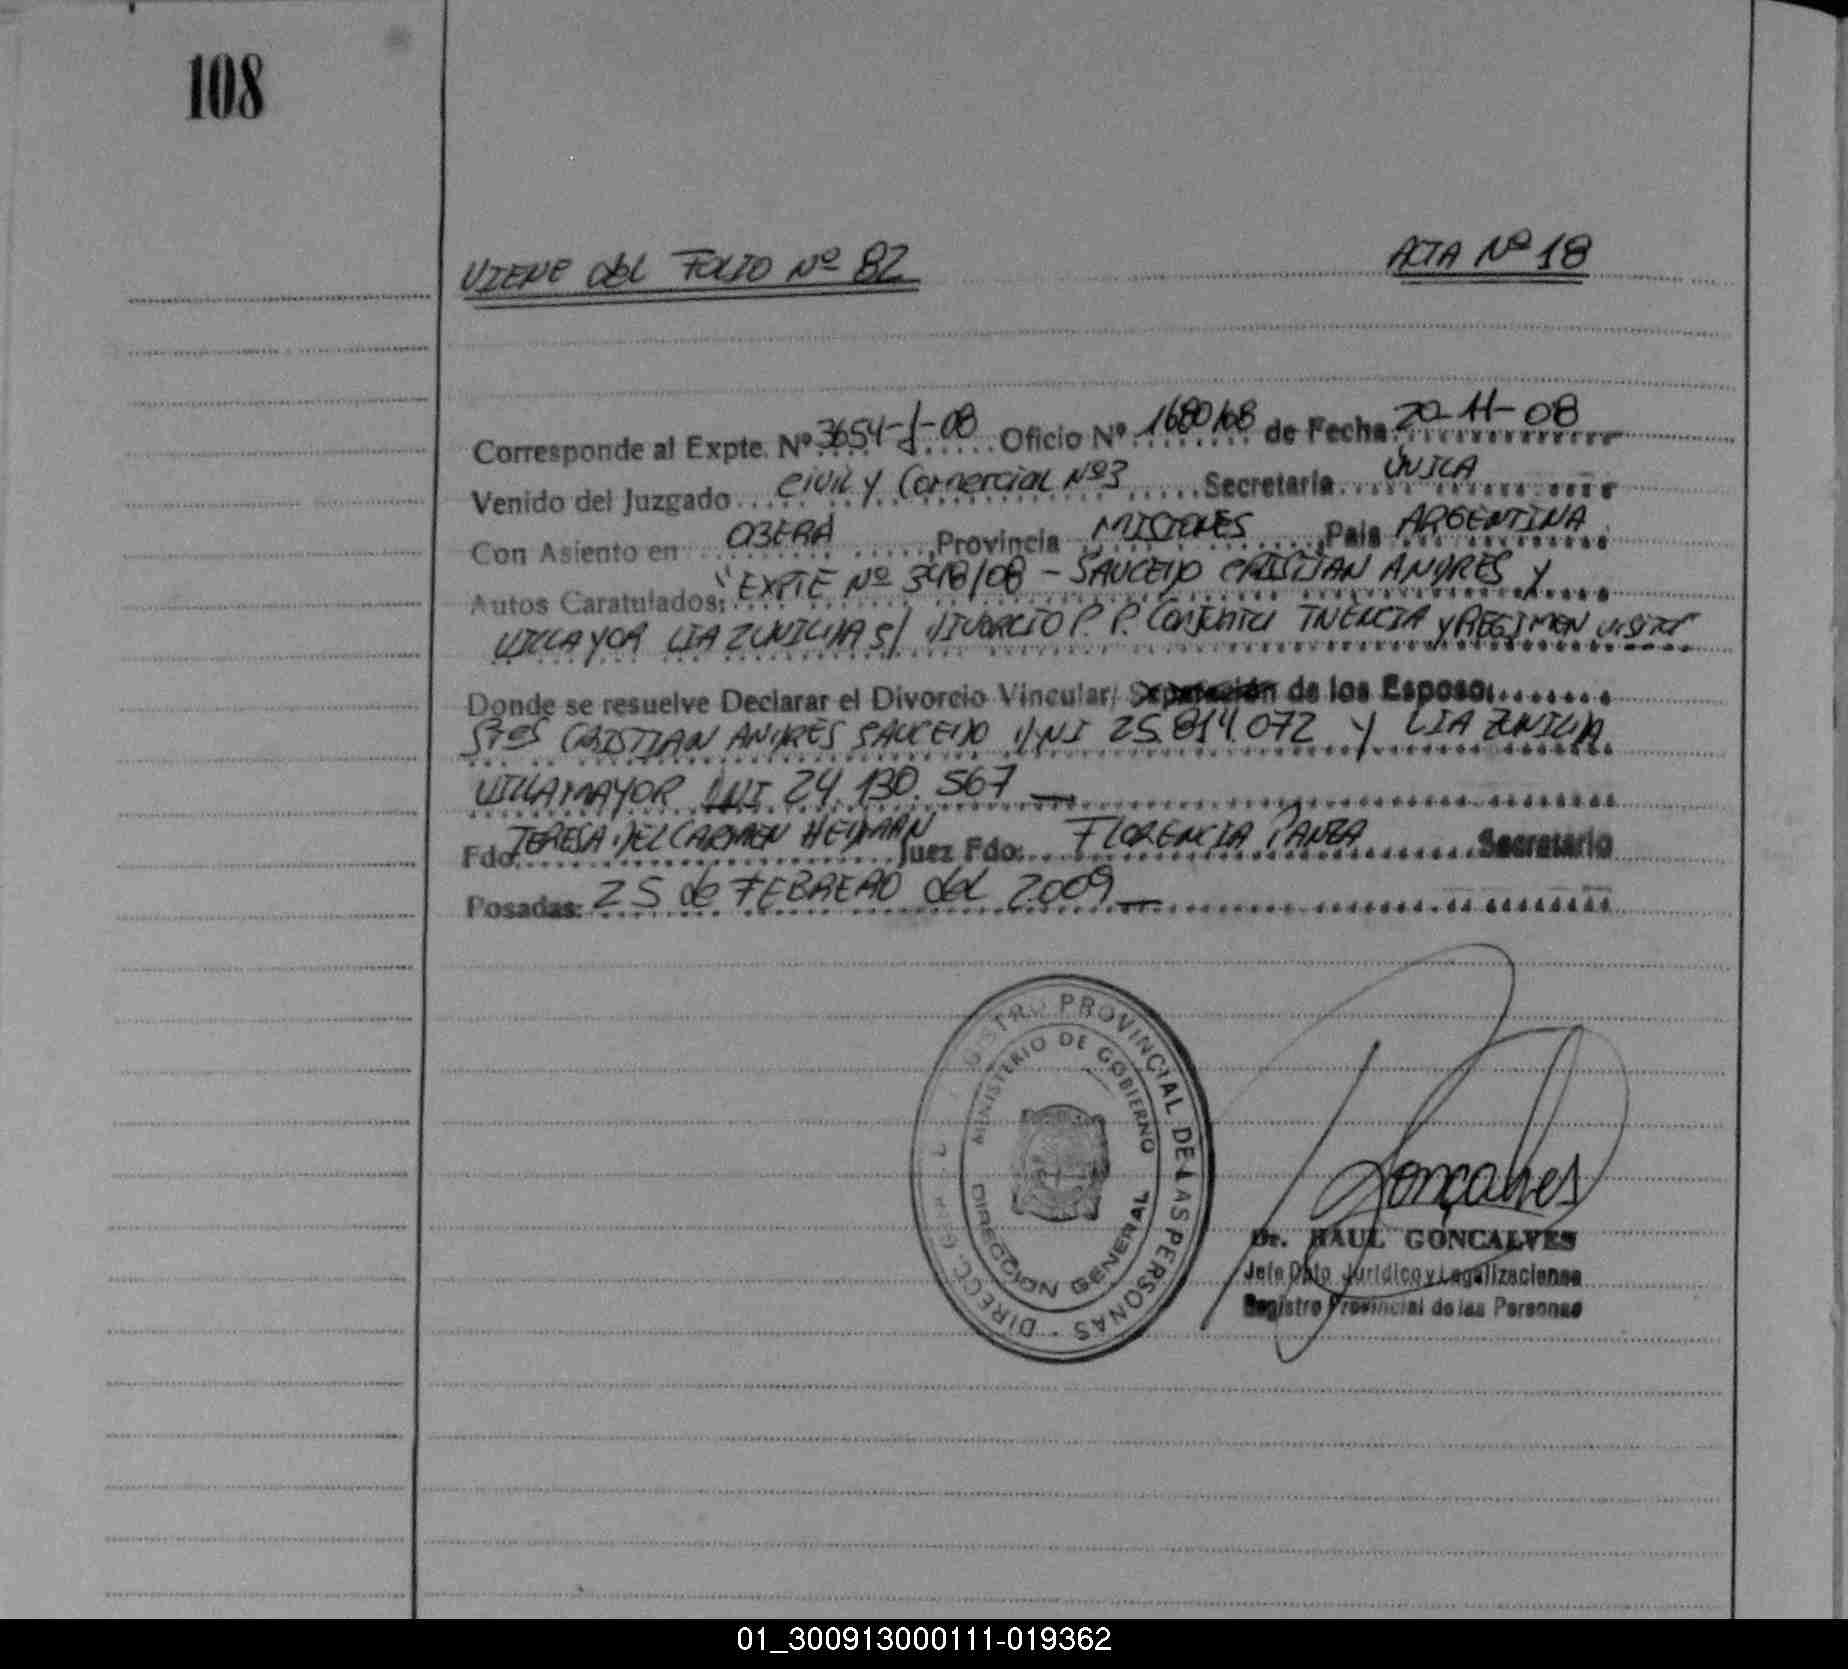 108
VIENE del FOLIO Nº 82
ACTA Nº 18
Corresponde al Expte. Nº 3654-J-08 Oficio Nº 1680/08 de Fecha 20-11-08
Venido del Juzgado Civil y Comercial Nº3 Secretaria UNICA
Con Asiento en OBERA, Provincia MISIONES, Pais ARGENTINA
Autos Caratulados: "EXPTE Nº 348/08 - SAUCEDO CRISTIAN ANDRES y
LIA ZUNILDA S/ DIVORCIO P. P. Conjunta TNENCIA y REGIMEN
Donde se resuelve Declarar el Divorcio Vincular/ Separación de los Esposos
Sres CRISTIAN ANDRES SAUCEDO DNI 25.814.072 y LIA ZUNILDA
VILLAMAYOR DNI 24.130.567
Fdo. TERESA DEL CARMEN HEDMAN Juez Fdo: FLORENCIA PANZA Secretario
Posadas: 25 de FEBRERO del 2009
REGISTRO PROVINCIAL DE LAS PERSONAS
MINISTERIO DE GOBIERNO
DIRECCION GENERAL
Goncalves
Dr. RAUL GONCALVES
Jefe Dpto Jurídico y Legalizaciones
Registro Provincial de las Personas
01_300913000111-019362